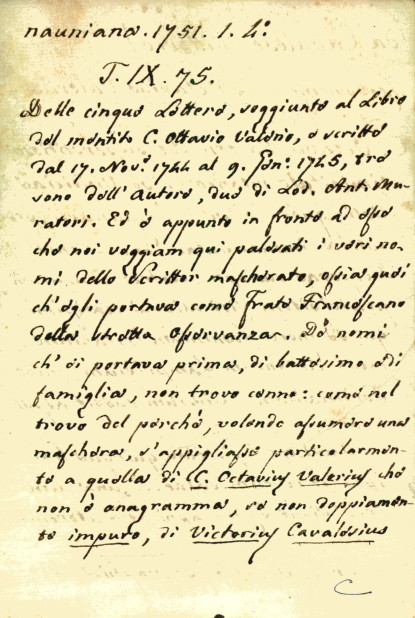 nauniana. 1751. 1. 4º.
T. IX. 75.
Delle cinque Lettere, soggiunte al Libro
del mentito C. Ottavio Valerio, e scritte
dal 17. Nov.e 1744 al 9. Gen.º 1745, tre
sono dell'Autore, due di Lod. Ant. Mu-
ratori. Ed è appunto in fronte ad esse
che noi veggiam qui palesati i veri no-
mi dello Scrittor mascherato, ossia quei
ch'egli portava come Frate Francescano
della stretta Osservanza. De' nomi
ch'ei portava prima, di battesimo e di
famiglia, non trovo cenno: come nol
trovo del perchè, volendo assumere una
maschera, s'appigliasse particolarmen-
te a quella di C. Octavius Valerius che
non è anagramma, se non doppiamen-
te impuro, di Victorius Cavalesius
C